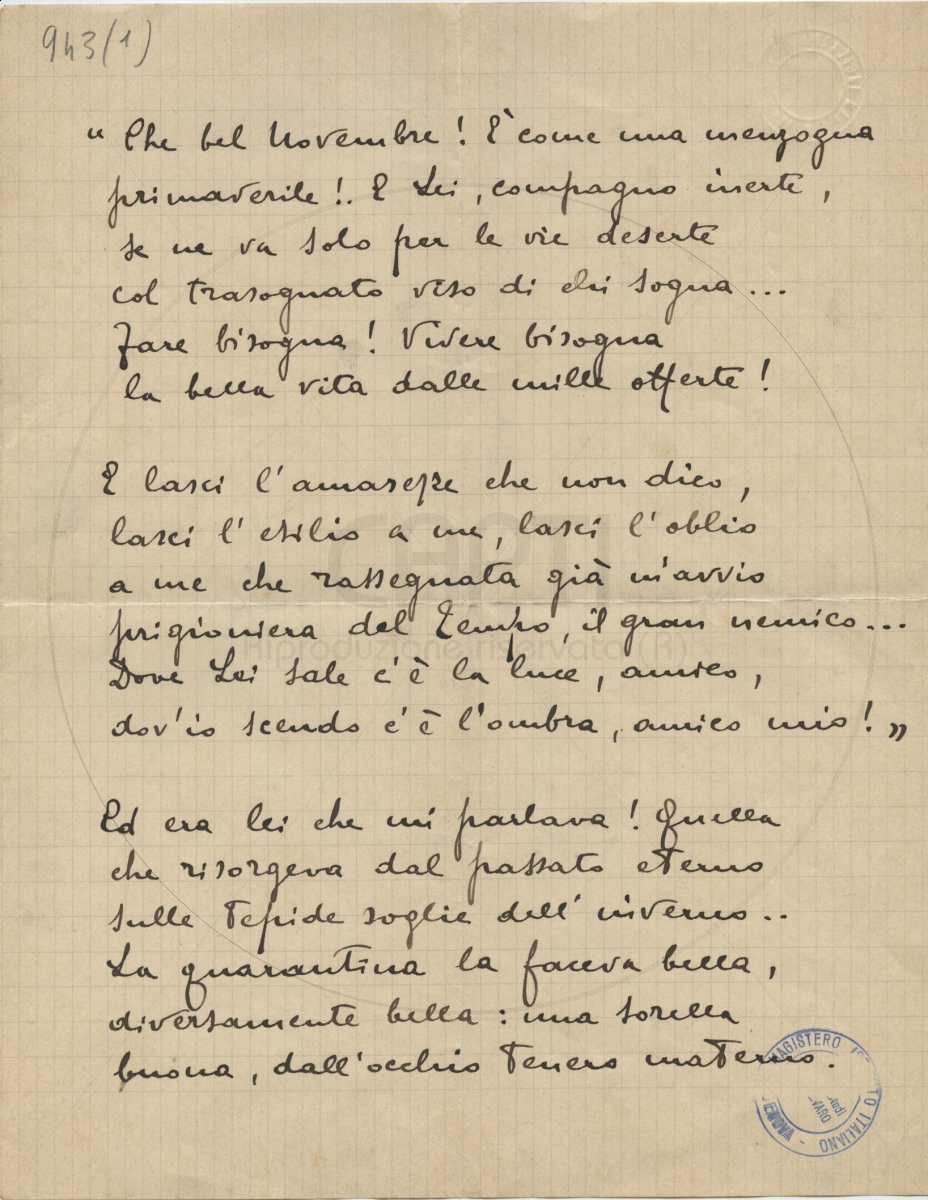 943(1)
“ Che bel Novembre! È come una menzogna
primaverile!. E Lei, compagno inerte,
se ne va solo per le vie deserte
col trasognato viso di chi sogna...
Fare bisogna! Vivere bisogna
la bella vita dalle mille offerte!
E lasci l'amarezze che non dico,
lasci l'esilio a me, lasci l'oblio
a me che rassegnata già m'avvio
prigioniera del Tempo, il gran nemico...
Dove Lei sale c'è la luce, amico,
dov'io scendo c'è l'ombra, amico mio! „
Ed era lei che mi parlava! Quella
che risorgeva dal passato eterno
sulle tepide soglie dell'inverno..
La quarantina la faceva bella,
diversamente bella: una sorella
buona, dall'occhio tenero materno.
Riproduzione riservata (R)
MAGISTERO
ITALIANO